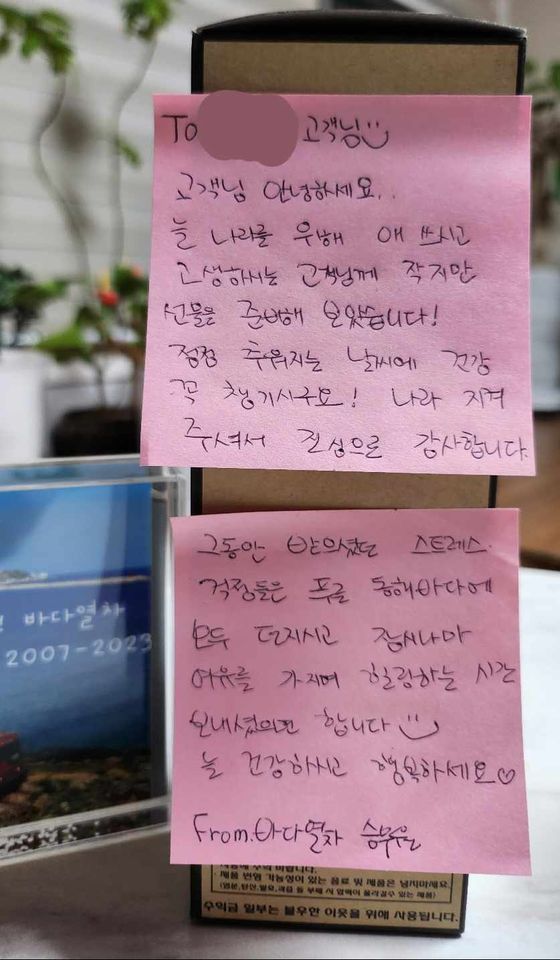 To 고객님
고객님 안녕하세요..
늘 나라를 위해 애 쓰시고
고생하시는 고객님께 작지만
선물을 준비해 보았습니다!
점점 추워지는 날씨에 건강
꼭 챙기시구요! 나라 지켜
주셔서 진심으로 감사합니다.
그동안 받으셨던 스트레스.
걱정들은 푸른 동해바다에
모두 던지시고 잠시나마
여유를 가지며 힐링하는 시간
보내셨으면 합니다
늘 건강하시고 행복하세요♡
From.바다열차 승무원
바다열차
2007-2023
제품 변형 가능성이 있는 음료 및 제품은 넣지마세요.
수익금 일부는 불우한 이웃을 위해 사용됩니다.